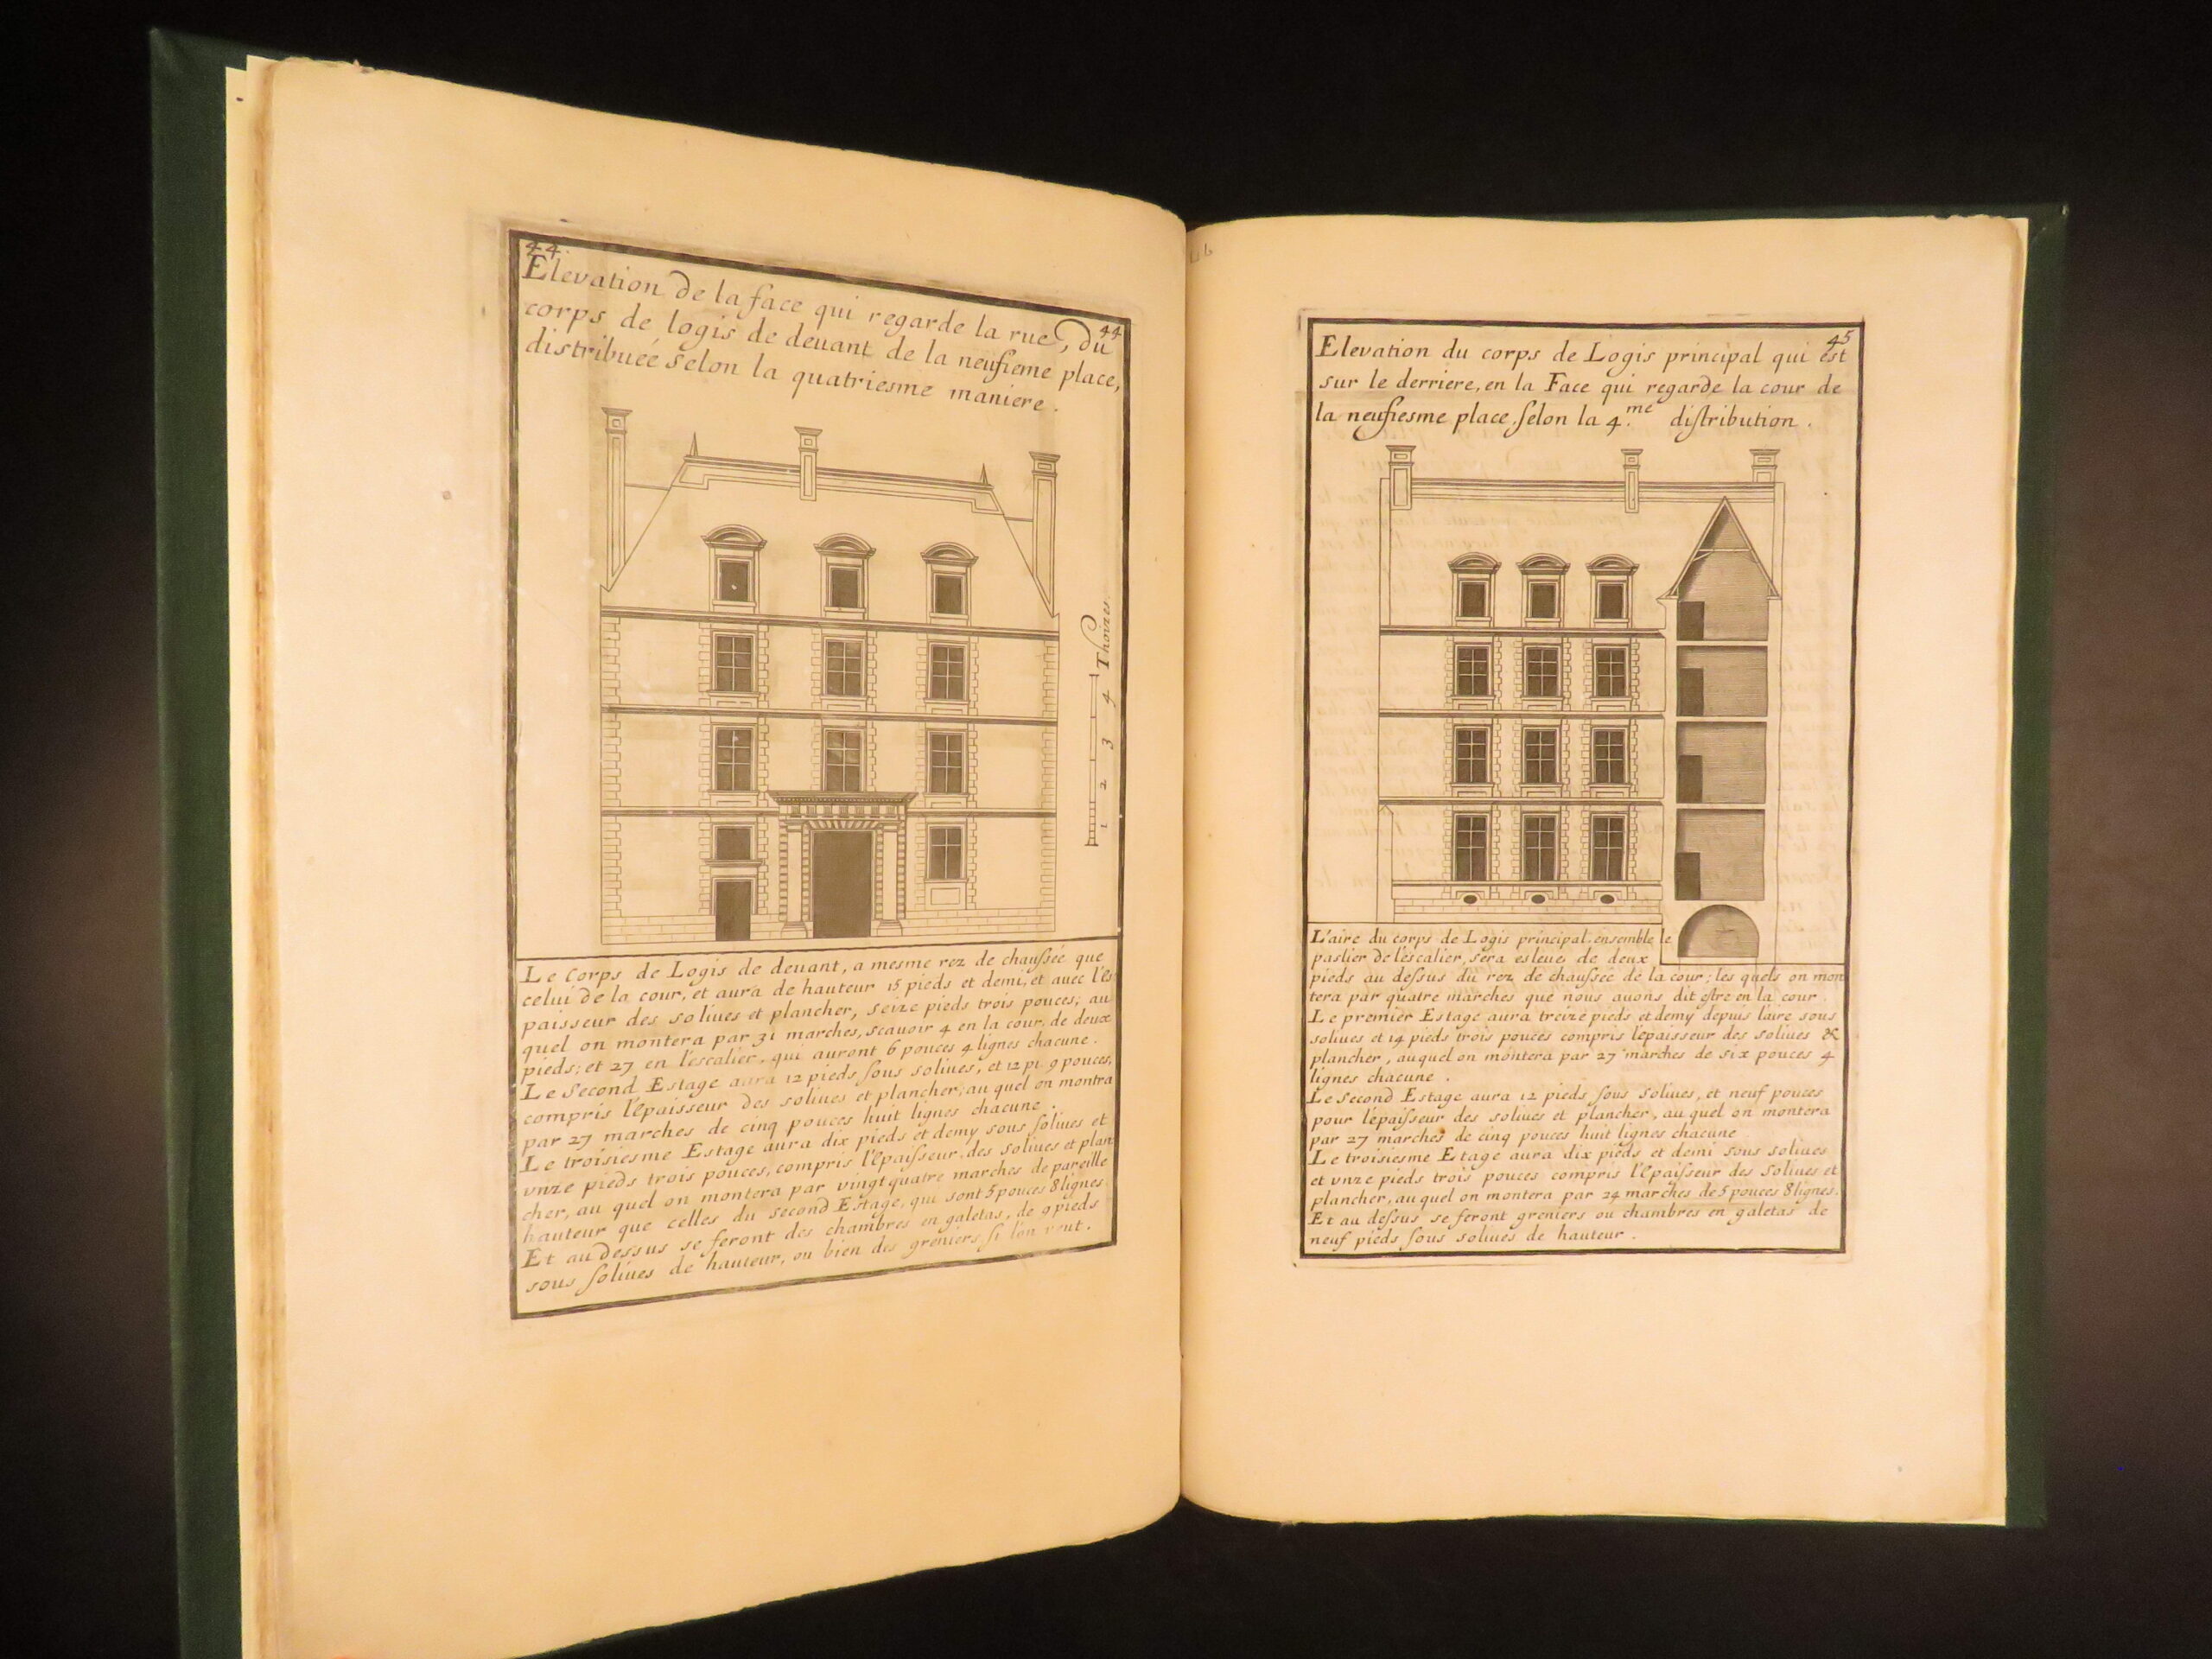 44.
44
Elevation de la face qui regarde la rue, du
corps de logis de deuant de la neufieme place,
distribuée selon la quatriesme maniere.
Thoizes.
1 2 3 4
Le Corps de Logis de deuant, a mesme rez de chaussée que
celui de la cour, et aura de hauteur 15 pieds et demi, et auec l'es
paisseur des soliues et plancher, seize pieds trois pouces; au
quel on montera par 31 marches, scauoir 4 en la cour, de deux
pieds; et 27 en l'escalier, qui auront 6 pouces 4 lignes chacune.
Le Second Estage aura 12 pieds sous soliues, et 12 pi. 9 pouces,
compris l'epaisseur des soliues et plancher; au quel on montra
par 27 marches de cinq pouces huit lignes chacune.
Le troisiesme Estage aura dix pieds et demy sous soliues et
vnze pieds trois pouces, compris l'epaisseur des soliues et plan
cher, au quel on montera par vingt quatre marches de pareille
hauteur que celles du second Estage, qui sont 5 pouces 8 lignes.
Et au dessus se feront des chambres en galetas, de 9 pieds
sous soliues de hauteur, ou bien des greniers si l'on veut.
45
Elevation du corps de Logis principal qui est
sur le derriere, en la Face qui regarde la cour de
la neufiesme place, selon la 4.me distribution.
L'aire du corps de Logis principal, ensemble le
paslier de l'escalier, sera esleué de deux
pieds au dessus du rez de chaussée de la cour; les quels on mon
tera par quatre marches que nous auons dit estre en la cour.
Le premier Estage aura treize pieds et demy depuis l'aire sous
soliues et 14 pieds trois pouces compris l'epaisseur des soliues &
plancher, auquel on montera par 27 marches de six pouces 4
lignes chacune.
Le Second Estage aura 12 pieds sous soliues, et neuf pouces
pour l'epaisseur des soliues et plancher, au quel on montera
par 27 marches de cinq pouces huit lignes chacune
Le troisiesme Etage aura dix pieds et demi sous soliues
et vnze pieds trois pouces compris l'epaisseur des soliues et
plancher, au quel on montera par 24 marches de 5 pouces 8 lignes.
Et au dessus se feront greniers ou chambres en galetas de
neuf pieds sous soliues de hauteur.